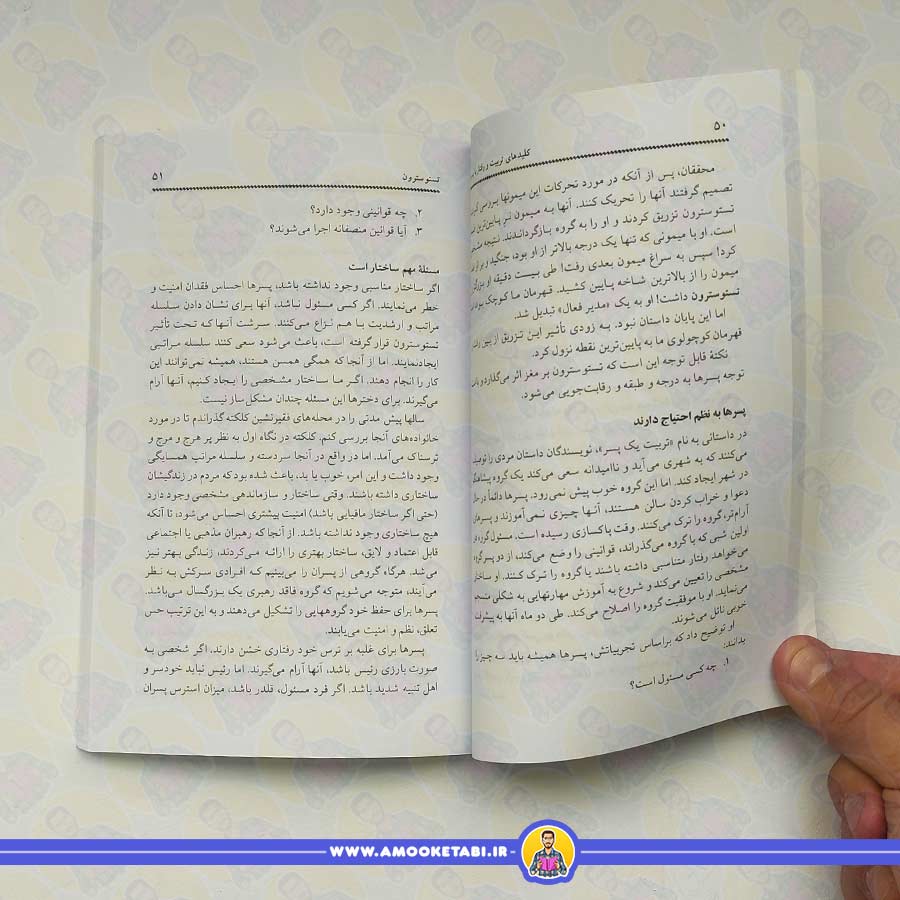 ۵۰
کلیدهای تربیت و رفتار با
محققان، پس از آنکه در مورد تحرکات این میمونها بررسی
تصمیم گرفتند آنها را تحریک کنند. آنها به میمون نرِ پایین‌ترین
تستوسترون تزریق کردند و او را به گروه بازگرداندند. نتیجه
است. او با میمونی که تنها یک درجه بالاتر از او بود، جنگید و بر او
کرد! سپس به سراغ میمون بعدی رفت! طی بیست دقیقه او
میمون را از بالاترین شاخه پایین کشید. قهرمان ما کوچک بود
تستوسترون داشت! او به یک «مدیر فعال» تبدیل شد.
اما این پایان داستان نبود. به زودی تأثیر این تزریق از بین
قهرمان کوچولوی ما به پایین‌ترین نقطه نزول کرد.
نکتهٔ قابل توجه این است که تستوسترون بر مغز اثر می‌گذارد و
توجه پسرها به درجه و طبقه و رقابت‌جویی می‌شود.
پسرها به نظم احتیاج دارند
در داستانی به نام «تربیت یک پسر»، نویسندگان داستان مردی را
می‌کنند که به شهری می‌آید و ناامیدانه سعی می‌کند یک گروه
در شهر ایجاد کند. اما این گروه خوب پیش نمی‌رود. پسرها دائماً در
دعوا و خراب کردن سالن هستند، آنها چیزی نمی‌آموزند و پسرهای
آرام‌تر، گروه را ترک می‌کنند. وقت پاکسازی رسیده است. مسئول گروه
اولین شبی که با گروه می‌گذراند، قوانینی را وضع می‌کند، از دو پسر
می‌خواهد رفتار مناسبی داشته باشند یا گروه را ترک کنند. او
مشخصی را تعیین می‌کند و شروع به آموزش مهارتهایی به شکلی
می‌نماید. او با موفقیت گروه را اصلاح می‌کند. طی دو ماه آنها به
خوبی نائل می‌شوند.
او توضیح داد که براساس تجربیاتش، پسرها همیشه باید سه چیز را
بدانند:
۱. چه کسی مسئول است؟
۵۱
تستوسترون
۲. چه قوانینی وجود دارد؟
۳. آیا قوانین منصفانه اجرا می‌شوند؟
مسئلهٔ مهم ساختار است
اگر ساختار مناسبی وجود نداشته باشد، پسرها احساس فقدان امنیت و
خطر می‌نمایند. اگر کسی مسئول نباشد، آنها برای نشان دادن سلسله
مراتب و ارشدیت با هم نزاع می‌کنند. سرشت آنها که تحت تأثیر
تستوسترون قرار گرفته است، باعث می‌شود سعی کنند سلسله مراتبی
ایجاد نمایند. اما از آنجا که همگی همسن هستند، همیشه نمی‌توانند این
کار را انجام دهند. اگر ما ساختار مشخصی را ایجاد کنیم، آنها آرام
می‌گیرند. برای دخترها این مسئله چندان مشکل ساز نیست.
سالها پیش مدتی را در محله‌های فقیرنشین کلکته گذراندم تا در مورد
خانواده‌های آنجا بررسی کنم. کلکته در نگاه اول به نظر پر هرج و مرج و
ترسناک می‌آمد. اما در واقع در آنجا سردسته و سلسله مراتب همسایگی
وجود داشت و این امر، خوب یا بد، باعث شده بود که مردم در زندگیشان
ساختاری داشته باشند. وقتی ساختار و سازماندهی مشخصی وجود دارد
(حتی اگر ساختار مافیایی باشد) امنیت بیشتری احساس می‌شود، تا آنکه
هیچ ساختاری وجود نداشته باشد. از آنجا که رهبران مذهبی یا اجتماعی
قابل اعتماد و لایق، ساختار بهتری را ارائه می‌کردند، زندگی بهتر نیز
می‌شد. هرگاه گروهی از پسران را می‌بینیم که افرادی سرکش به نظر
می‌آیند، متوجه می‌شویم که گروه فاقد رهبری یک بزرگسال می‌باشد.
پسرها برای حفظ خود گروههایی را تشکیل می‌دهند و به این ترتیب حس
تعلق، نظم و امنیت می‌یابند.
پسرها برای غلبه بر ترس خود رفتاری خشن دارند. اگر شخصی به
صورت بارزی رئیس باشد، آنها آرام می‌گیرند. اما رئیس نباید خودسر و
اهل تنبیه شدید باشد. اگر فرد مسئول، قلدر باشد، میزان استرس پسران
WWW.AMOOKETABI.IR